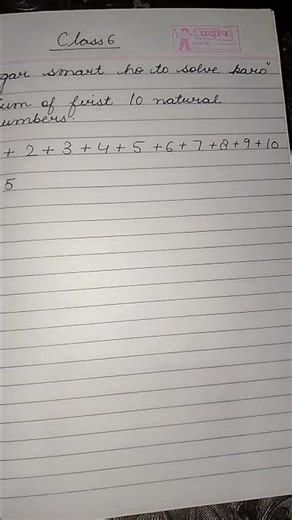 Class 6
प्रदीप
gar smart ho to solve karo
um of first 10 natural
umbers.
+ 2 + 3 + 4 + 5 + 6 + 7 + 8 + 9 + 10
5